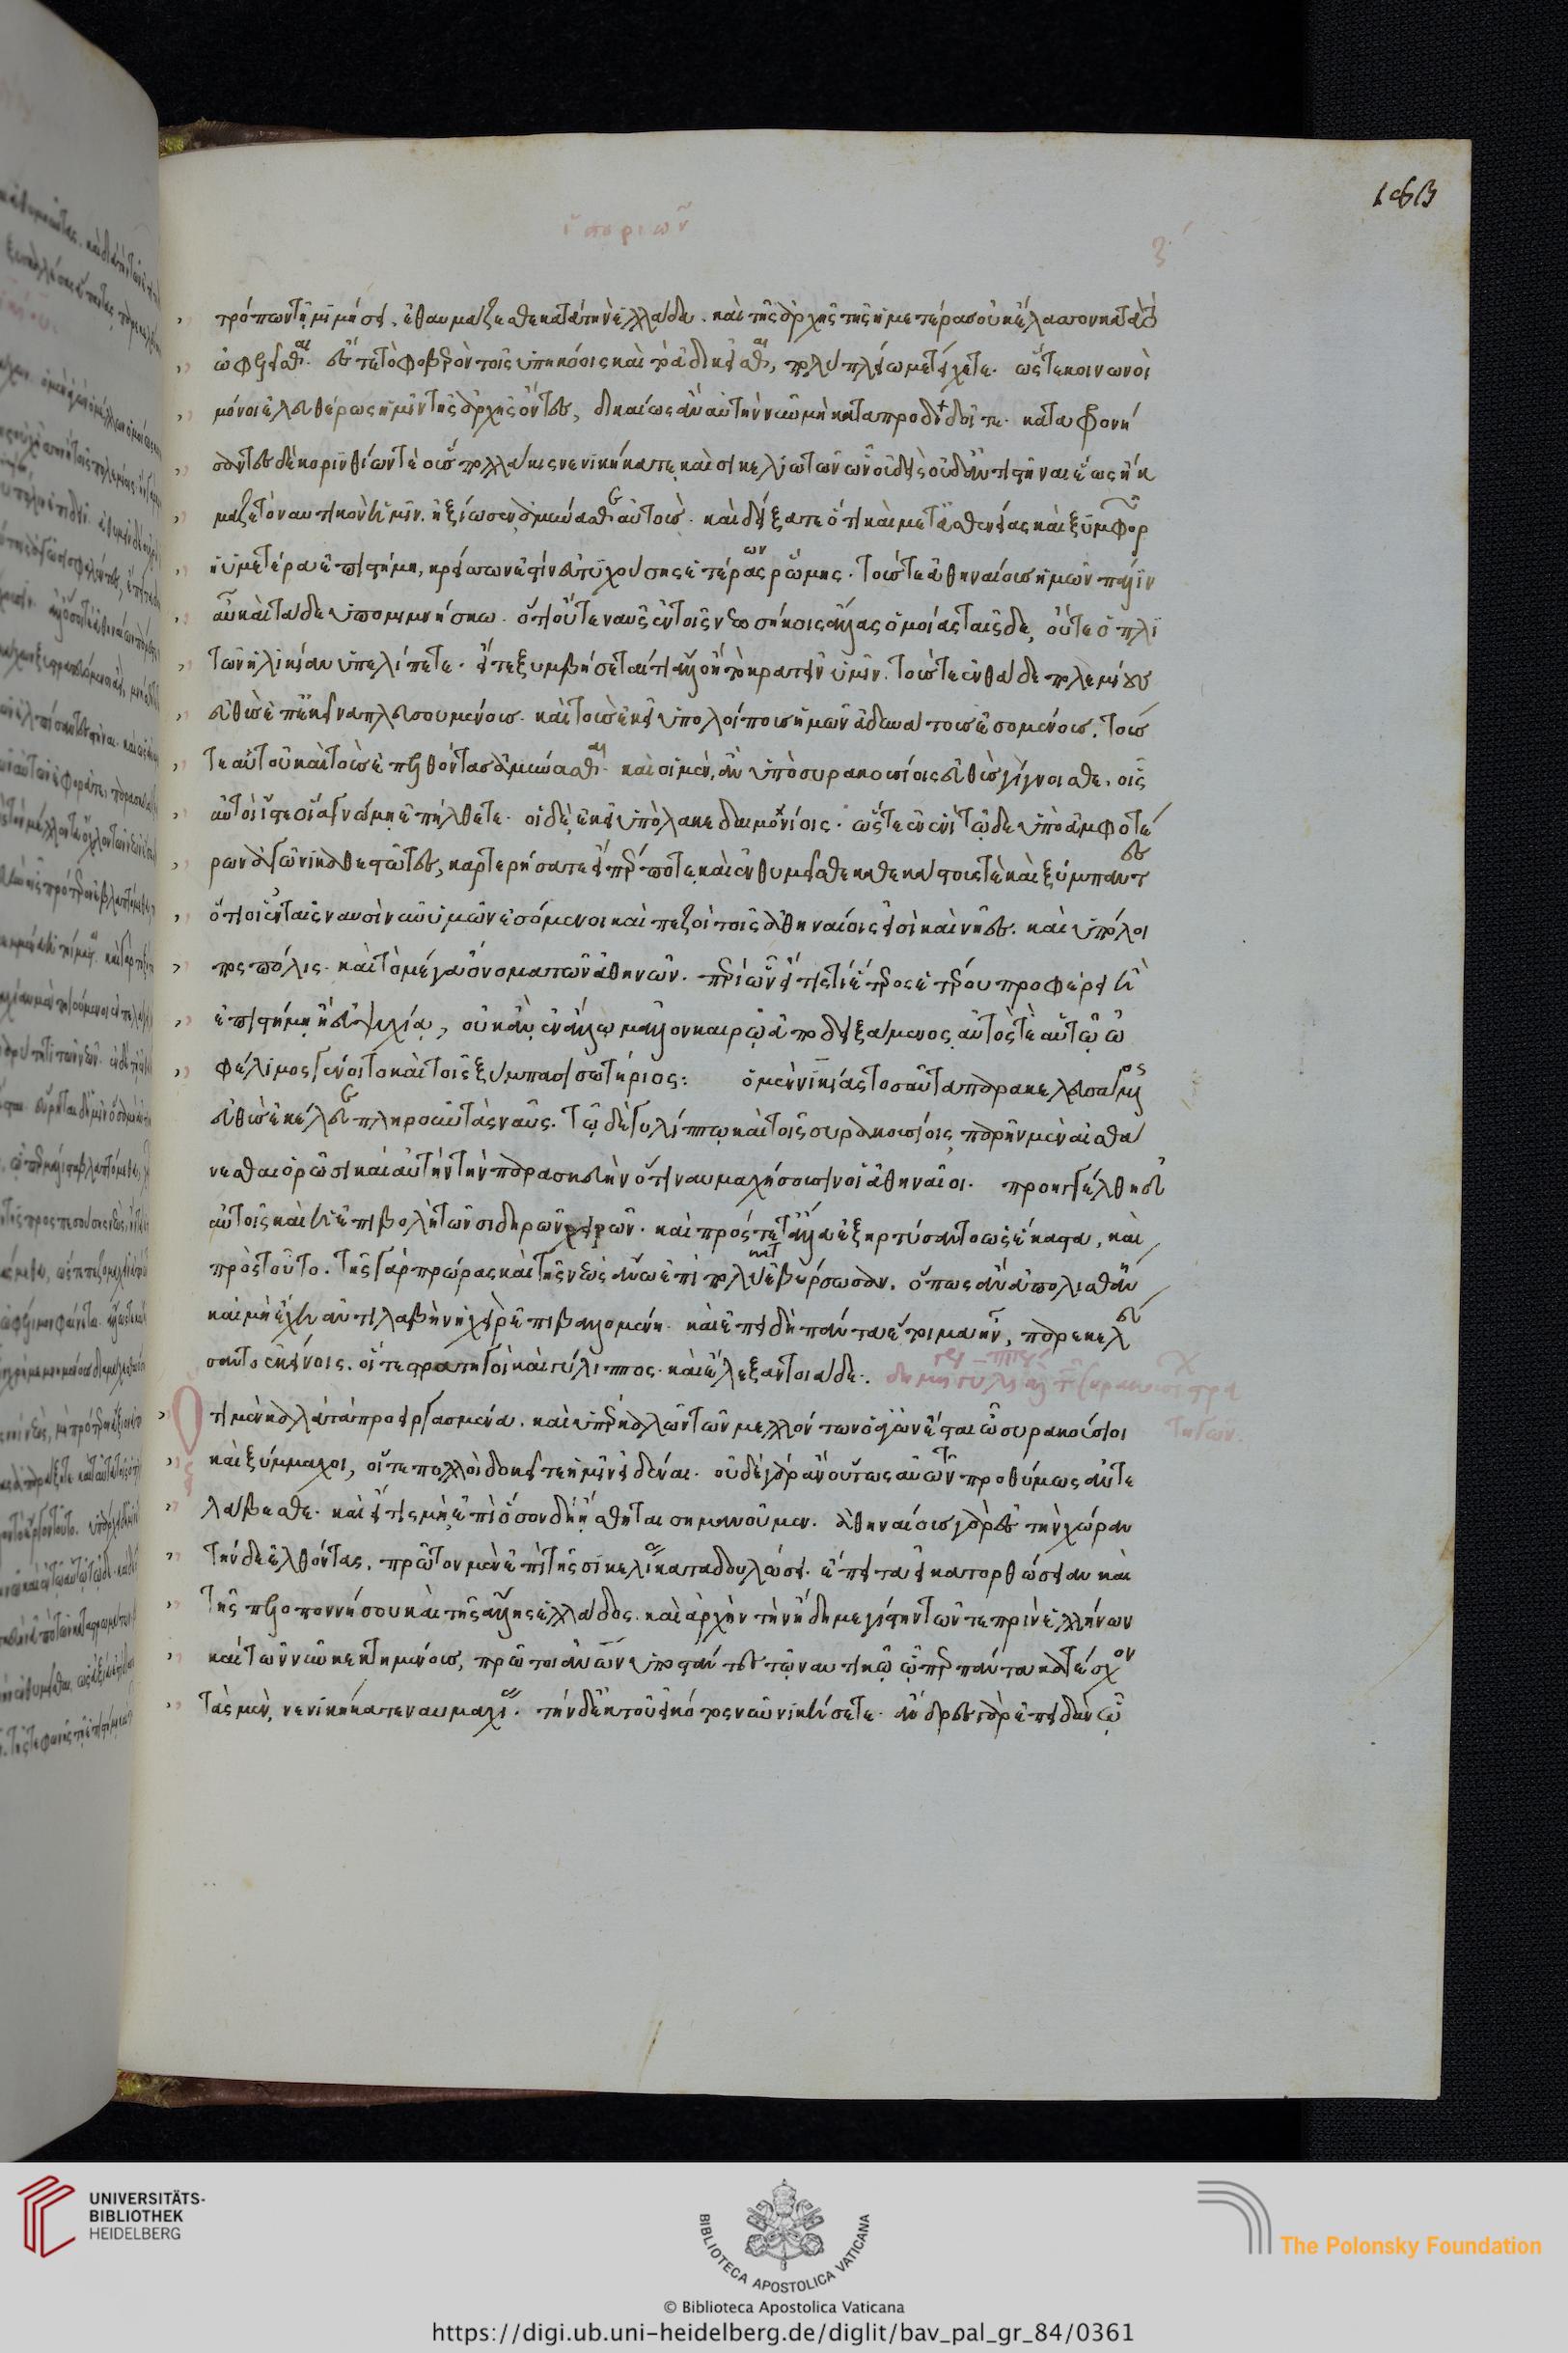 ἱστοριῶν ζ´
163
τρόπων τῇ μιμήσει. ἐθαυμάζεσθε κατὰ τὴν ἑλλάδα. καὶ τῆς ἀρχῆς τῆς ἡμετέρας οὐκ ἔλασσον κατὰ τὸ
ὠφελεῖσθαι. ἔς τε τὸ φοβερὸν τοῖς ὑπηκόοις καὶ τὸ ἀδικεῖσθαι, πολὺ πλείω μετείχετε. ὥστε κοινωνοὶ
μόνοι ἐλευθέρως ἡμῖν τῆς ἀρχῆς ὄντες, δικαίως ἂν αὐτὴν νῦν μὴ καταπροδίδοιτε. καταφρονή
σαντες δὲ κορινθίων τὲ οὓς πολλάκις νενικήκατε, καὶ σικελιωτῶν ὧν οὐδεὶς οὐδ' ἀντιστῆναι ἕως ἤκ
μαζε τὸ ναυτικὸν ἡμῖν. ἠξίωσεν, ἀμύνασθε αὐτούς. καὶ δείξατε ὅτι καὶ μετ' ἀσθενείας καὶ ξυμφορῶν
ἡ ὑμετέρα ἐπιστήμη, κρείσσων ἐστὶν εὐτυχούσης ἑτέρας ῥώμης. τούς τε ἀθηναίους ἡμῶν πάλιν
αὖ καὶ τάδε ὑπομιμνήσκω. ὅτι οὔτε ναῦς ἐν τοῖς νεωσοίκοις ἄλλας ὁμοίας ταῖσδε, οὔτε ὁπλι
τῶν ἡλικίαν ὑπελίπετε. εἴ τε ξυμβήσεταί τι ἄλλο ἢ τὸ κρατεῖν ὑμῖν. τούς τε ἐνθάδε πολεμίους
εὐθὺς ἐπ' ἐκεῖνα πλευσουμένους. καὶ τοὺς ἐκεῖ ὑπολοίπους ἡμῶν ἀδυνάτους ἐσομένους. τούς
τε αὐτοῦ καὶ τοὺς ἐπελθόντας ἀμύνασθαι. καὶ οἱ μὲν, ἂν ὑπὸ συρακουσίοις εὐθὺς γίγνοισθε. οἷς
αὐτοὶ ἴστε οἵᾳ γνώμῃ ἐπήλθετε. οἱ δὲ, ἐκεῖ ὑπὸ λακεδαιμονίοις. ὥστε ἐν ἑνὶ τῷδε ὑπὸ ἀμφοτέ
ρων ἀγῶνι καθεστῶτες, καρτερήσατε εἴπερ ποτε, καὶ ἐνθυμεῖσθε καθ' ἑκάστους τὲ καὶ ξύμπαντες
ὅτι οἱ ἐν ταῖς ναυσὶν νῦν ὑμῶν ἐσόμενοι καὶ πεζοὶ τοῖς ἀθηναίοις εἰσὶ καὶ νῆες. καὶ ὑπόλοι
πος πόλις. καὶ τὸ μέγα ὄνομα τῶν ἀθηνῶν. περὶ ὧν εἴ τίς τι ἕτερος ἑτέρου προφέρει ἢ
ἐπιστήμῃ ἢ εὐψυχίᾳ, οὐκ ἂν ἐν ἄλλῳ μᾶλλον καιρῷ ἀποδειξάμενος, αὐτός τε αὑτῷ ὠ
φέλιμος γένοιτο καὶ τοῖς ξύμπασι σωτήριος: ὁ μὲν νικίας τοσαῦτα παρακελευσάμενος
εὐθὺς ἐκέλευε πληροῦν τὰς ναῦς. τῷ δὲ γυλίππῳ καὶ τοῖς συρακουσίοις, παρῆν μὲν αἰσθά
νεσθαι ὁρῶσι καὶ αὐτὴν τὴν παρασκευὴν ὅτι ναυμαχήσουσιν οἱ ἀθηναῖοι. προηγγέλθη δ'
αὐτοῖς καὶ ἡ ἐπιβολὴ τῶν σιδηρῶν χειρῶν. καὶ πρός τε τἄλλα ἐξηρτύσαντο ὡς ἕκαστα, καὶ
πρὸς τοῦτο. τὰς γὰρ πρώρας καὶ τῆς νεὼς ἄνω ἐπὶ πολὺ κατεβύρσωσαν. ὅπως ἂν ἀπολισθάνοι
καὶ μὴ ἔχῃ ἀντιλαβὴν ἡ χεὶρ ἐπιβαλλομένη. καὶ ἐπειδὴ πάντα ἕτοιμα ἦν, παρεκελεύ
σαντο ἐκείνοις. οἵ τε στρατηγοὶ καὶ γύλιππος. καὶ ἔλεξαν τοιάδε.
Ὅτι μὲν καλὰ τὰ προειργασμένα. καὶ ὑπὲρ καλῶν τῶν μελλόντων ὁ ἀγὼν ἔσται ὦ συρακούσιοι
καὶ ξύμμαχοι, οἵ τε πολλοὶ δοκεῖτε ἡμῖν εἰδέναι. οὐδὲ γὰρ ἂν οὕτως αὐτῶν προθύμως ἀντε
λάβεσθε. καὶ εἴ τις μὴ ἐπὶ ὅσον δεῖ ᾔσθηται σημανοῦμεν. ἀθηναίους γὰρ ἐς τὴν χώραν
τήνδε ἐλθόντας. πρῶτον μὲν ἐπὶ τῆς σικελίας καταδουλώσει. ἔπειτα εἰ κατορθώσειαν καὶ
τῆς πελοποννήσου καὶ τῆς ἄλλης ἑλλάδος. καὶ ἀρχὴν τὴν ἤδη μεγίστην τῶν τε πρὶν ἑλλήνων
καὶ τῶν νῦν κεκτημένους, πρῶτοι ἀνθρώπων ὑποστάντες τῷ ναυτικῷ ᾧπερ πάντα κατέσχον
τὰς μὲν, νενικήκατε ναυμαχίας. τὴν δὲ ἐκ τοῦ εἰκότος νῦν νικήσετε. ἄνδρες γὰρ ἐπειδὰν ᾧ
UNIVERSITÄTS-
BIBLIOTHEK
HEIDELBERG
BIBLIOTECA APOSTOLICA VATICANA
The Polonsky Foundation
© Biblioteca Apostolica Vaticana
https://digi.ub.uni-heidelberg.de/diglit/bav_pal_gr_84/0361